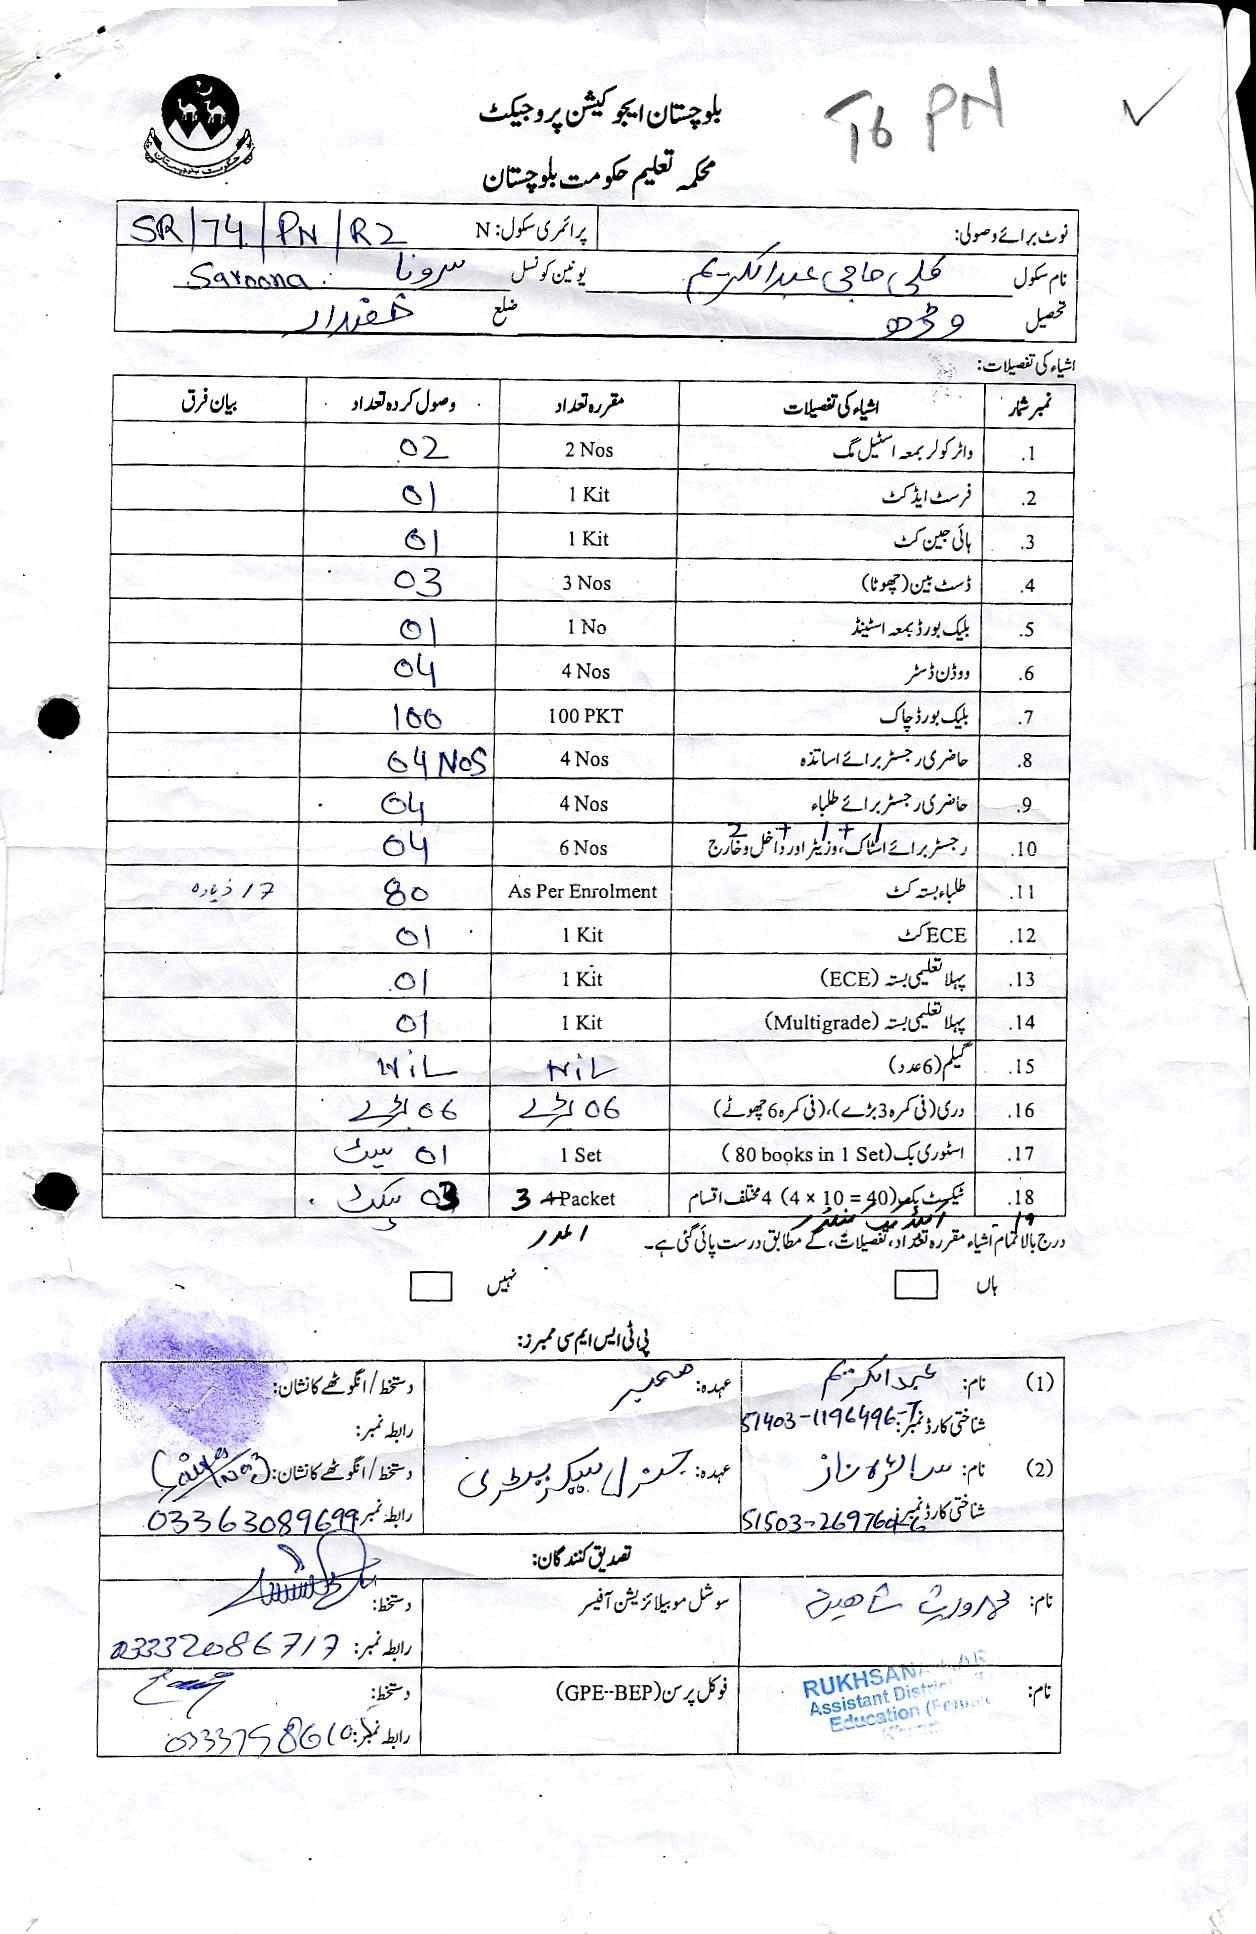 حکومت بلوچستان
بلوچستان ایجوکیشن پروجیکٹ
T6 PN
محکمہ تعلیم حکومت بلوچستان
نوٹ برائے وصولی: پرائمری سکول: N SR/74/PN/R2
نام سکول کلی حاجی عبدالکریم یونین کونسل سرونا Saroona
تحصیل وڈھ ضلع خضدار
اشیاء کی تفصیلات:
نمبر شمار اشیاء کی تفصیلات مقررہ تعداد وصول کردہ تعداد بیان فرق
1. واٹر کولر بمعہ اسٹیل مگ 2 Nos 02
2. فرسٹ ایڈ کٹ 1 Kit 01
3. ہائی جین کٹ 1 Kit 01
4. ڈسٹ بین (چھوٹا) 3 Nos 03
5. بلیک بورڈ بمعہ اسٹینڈ 1 No 01
6. ووڈن ڈسٹر 4 Nos 04
7. بلیک بورڈ چاک 100 PKT 100
8. حاضری رجسٹر برائے اساتذہ 4 Nos 04 Nos
9. حاضری رجسٹر برائے طلباء 4 Nos 04
2 + 1 + 1
10. رجسٹر برائے اسٹاک، وزیٹر اور داخل و خارج 6 Nos 04
11. طلباء بستہ کٹ As Per Enrolment 80 17 زیادہ
12. ECE کٹ 1 Kit 01
13. پہلا تعلیمی بستہ (ECE) 1 Kit 01
14. پہلا تعلیمی بستہ (Multigrade) 1 Kit 01
15. گیلم (6 عدد) Nil Nil
16. دری (فی کمرہ 3 بڑے)، (فی کمرہ 6 چھوٹے) 06 بڑے 06 بڑے
17. اسٹوری بک (80 books in 1 Set) 1 Set 01 سیٹ
18. ٹیکسٹ بکس (4 × 10 = 40) 4 مختلف اقسام 3 4 Packet 03 پیکٹ
19
درج بالا تمام اشیاء مقررہ تعداد، تفصیلات، کے مطابق درست پائی گئی ہے۔
ہاں نہیں
پی ٹی ایس ایم سی ممبرز:
(1) نام: عبدالکریم عہدہ: ممبر دستخط / انگوٹھے کا نشان:
شناختی کارڈ نمبر: 51403-1196496-7 رابطہ نمبر:
(2) نام: سائرہ ناز عہدہ: جنرل سیکریٹری دستخط / انگوٹھے کا نشان:
شناختی کارڈ نمبر: رابطہ نمبر: 03363089699
تصدیق کنندگان:
نام: شاہین سوشل موبیلائزیشن آفیسر دستخط:
رابطہ نمبر: 03332086717
نام: RUKHSANA فوکل پرسن (GPE--BEP) دستخط:
Assistant District
Education
رابطہ نمبر: